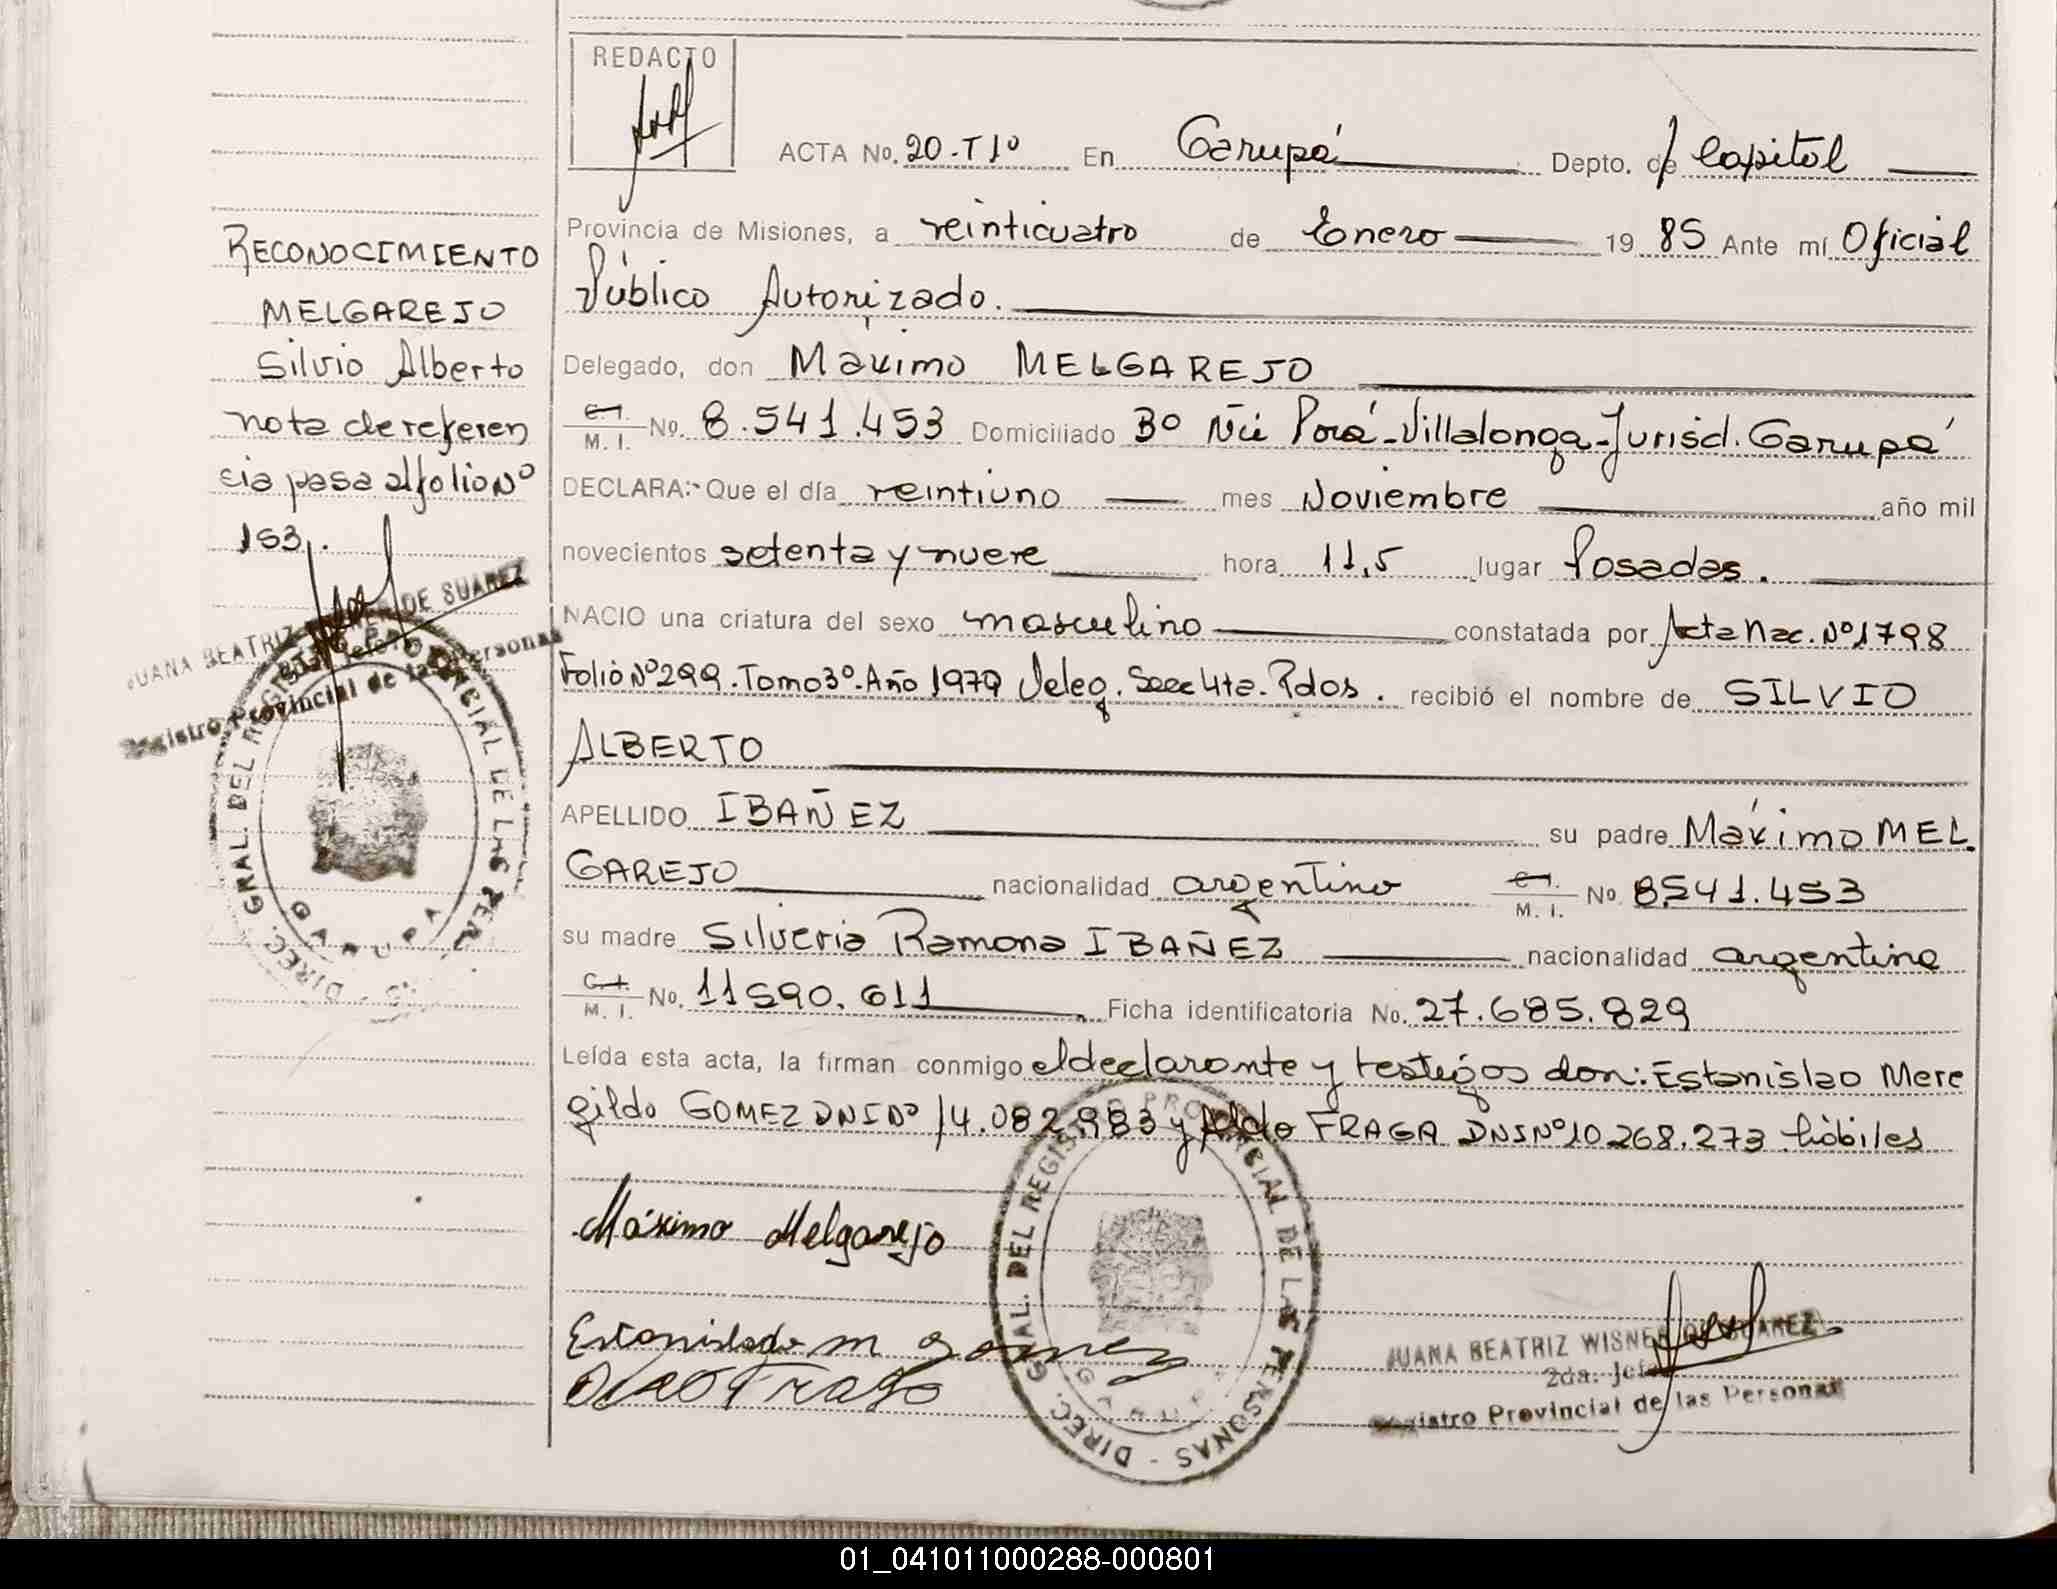 REDACTO
ACTA No. 20-T1º En Garupá Depto. de Capital
Provincia de Misiones, a veinticuatro de Enero 19 85 Ante mí Oficial
Público Autorizado.
Delegado, don Maximo MELGAREJO
C.I. M. I. No. 8.541.453 Domiciliado Bº Ñú Porá-Villalonga-Jurisd. Garupá
DECLARA:- Que el día veintiuno mes Noviembre año mil
novecientos setenta y nueve hora 11,5 lugar Posadas.
NACIO una criatura del sexo masculino constatada por Acta Nac. Nº 1798
Folio Nº 299. Tomo 3º. Año 1979 Deleg. Secc 4ta. Pdas. recibió el nombre de SILVIO
ALBERTO
APELLIDO IBAÑEZ su padre Máximo MEL
GAREJO nacionalidad argentino C.I. M. I. No. 8.541.453
su madre Silveria Ramona IBAÑEZ nacionalidad argentina
C.I. M. I. No. 11590.611 Ficha identificatoria No. 27.685.829
Leída esta acta, la firman conmigo el declarante y testigos don: Estanislao Mere
gildo GOMEZ DNI Nº 14.082.983 y Aldo FRAGA DNI Nº 10.268.273 hábiles
Máximo Melgarejo
Estanislado m gomez
Aldo Fraga
JUANA BEATRIZ WISNER DE SUAREZ
2da. Jefe
Registro Provincial de las Personas
DIREC. GRAL. DEL REGISTRO PROVINCIAL DE LAS PERSONAS - GARUPA
RECONOCIMIENTO
MELGAREJO
Silvio Alberto
nota de referen
cia pasa al folio Nº
153.
JUANA BEATRIZ WISNER DE SUAREZ
2da. Jefe
Registro Provincial de las Personas
DIREC. GRAL. DEL REGISTRO PROVINCIAL DE LAS PERSONAS - GARUPA
01_041011000288-000801